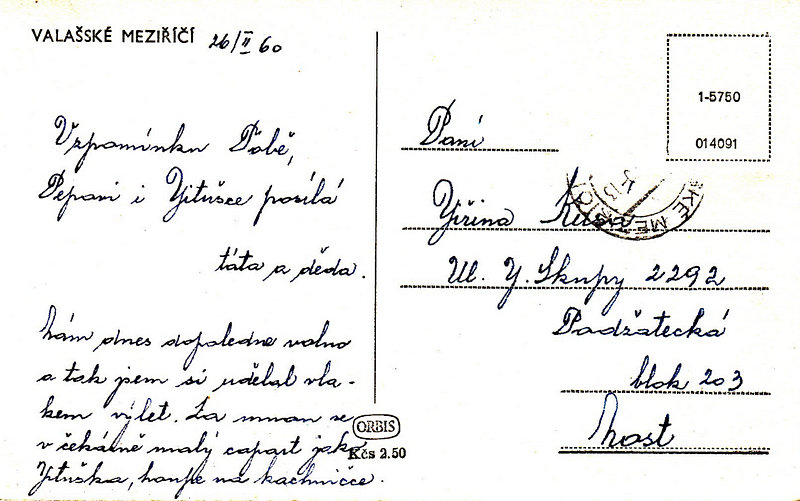 VALAŠSKÉ MEZIŘÍČÍ 26/II 60
Vzpomínku Tobě,
Pepovi i Jitušce posílá
táta a děda.
Mám dnes dopoledne volno
a tak jsem si udělal vla-
kem výlet. Za mnou se
v čekárně malý capart jako
Jituška, houpe na kachničce.
ORBIS
Kčs 2.50
1-5750
014091
Paní
Jiřina
Ul. J. Skupy 2292
Podžatecká
blok 203
Most
SKÉ MEZIŘÍČÍ